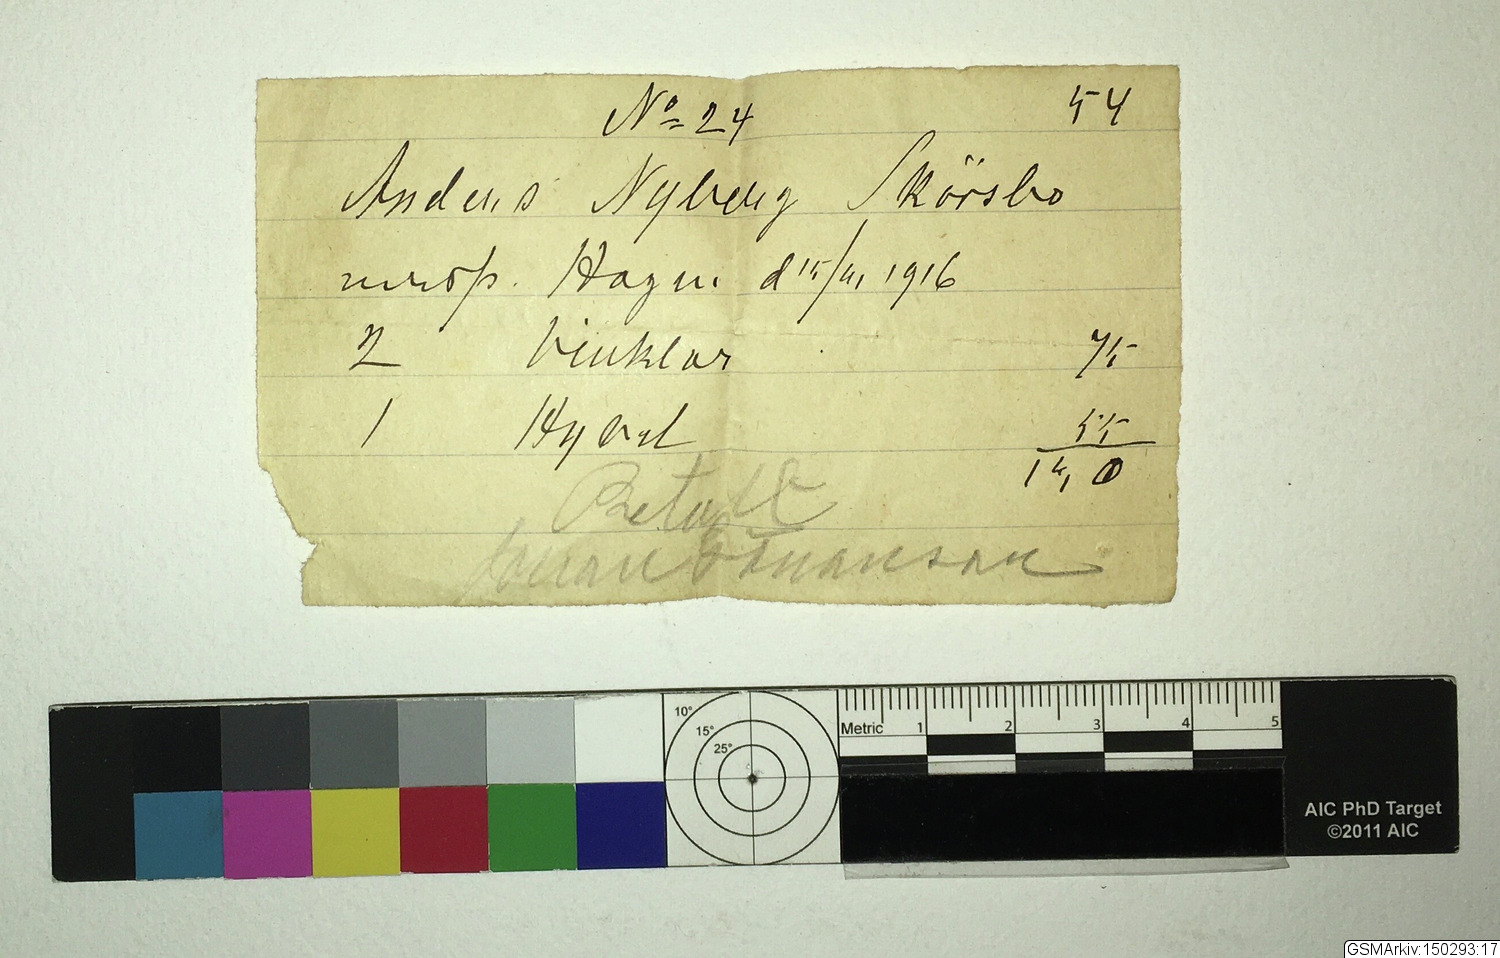 No 24 54
Anders Nyberg Skörsbo
inrop. Hagen d 15/4 1916
2 Vinklar 75
1 Hyvel 55
1,0
Betalt
Johan Johanson
10°
15°
25°
Metric 1 2 3 4 5
AIC PhD Target
©2011 AIC
GSMArkiv:150293:17